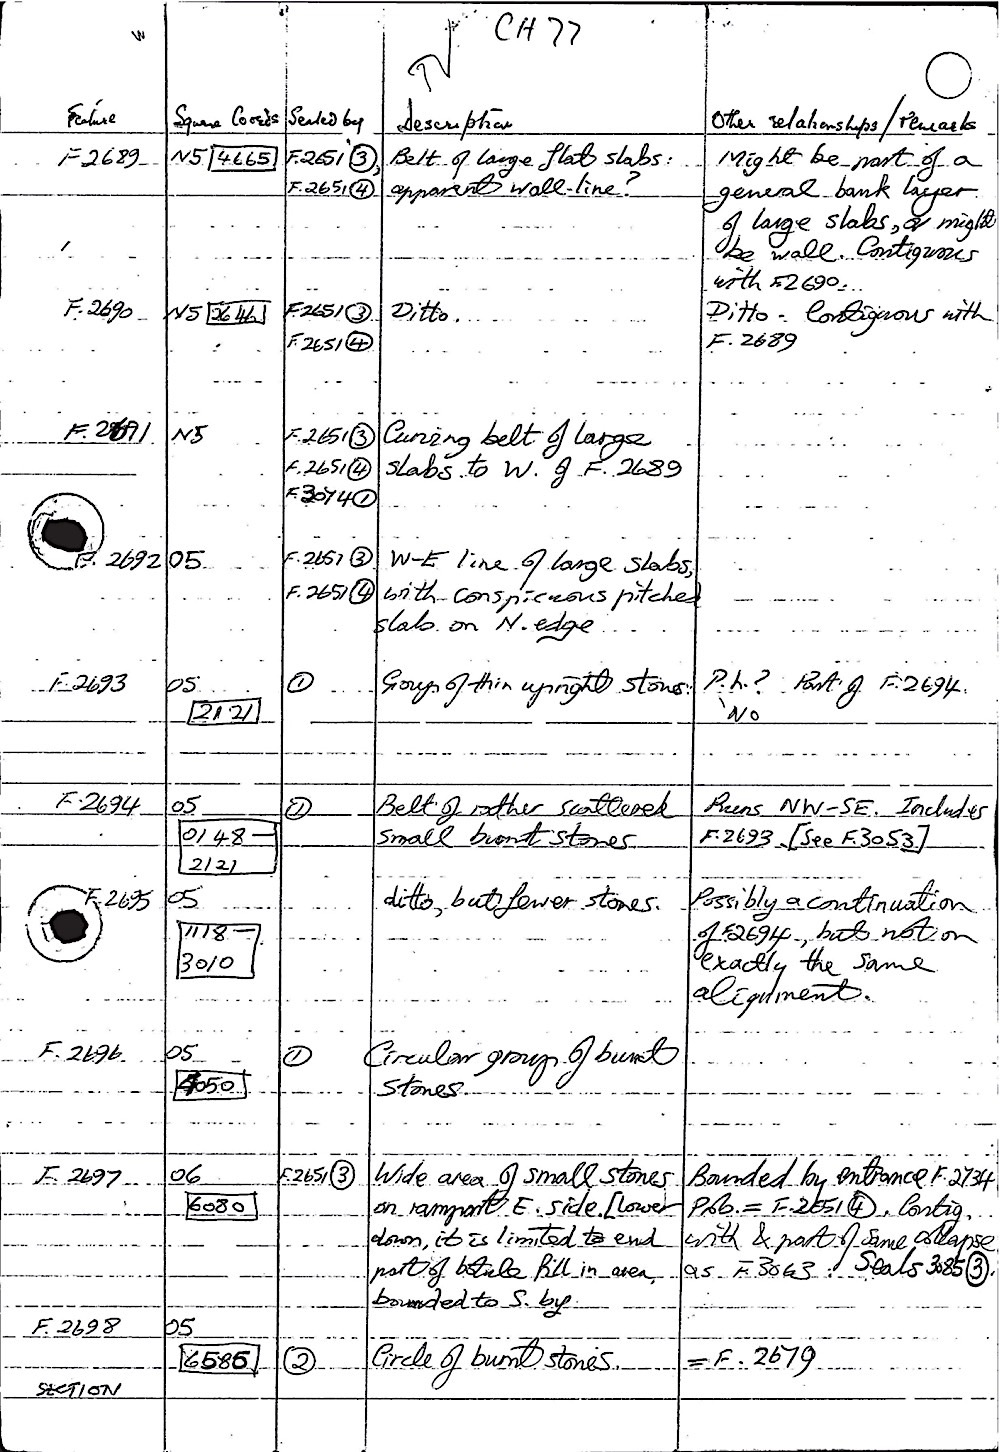 CH 77
Feature Square Coords Sealed by Description Other relationships/remarks
F2689 N5 4665 F.2651 ③, Belt of large flat slabs: Might be part of a
F.2651 ④ apparent wall-line? general bank layer
of large slabs, or might
be wall. Contiguous
with F2690.
F.2690 N5 F2651 ③ Ditto. Ditto - Contiguous with
F.2651 ④ F. 2689
F. 2691 N5 F.2651 ③ Curving belt of large
F.2651 ④ slabs to W. of F. 2689
F.3074 ①
F. 2692 O5 F.2651 ③ W-E line of large slabs,
F.2651 ④ with conspicuous pitched
slabs on N. edge
F.2693 O5 ① Group of thin upright stones. P.h.? Part of F.2694.
2121 No
F.2694 O5 ① Belt of rather scattered Runs NW-SE. Includes
0148 — small burnt stones F.2693. [See F.3053]
2121
F.2695 O5 ditto, but fewer stones. Possibly a continuation
1118 — of F2694, but not on
3010 exactly the same
alignment.
F. 2696 O5 ① Circular group of burnt
4050 stones.
F. 2697 O6 F.2651 ③ Wide area of small stones Bounded by entrance F.2734
6080 on rampart E. side. [Lower Prob. = F.2651 ④. Contig.
down, it is limited to end with & part of same collapse
part of fill in area, as F.3063. Seals 3085 ③.
bounded to S. by
F. 2698 O5
6585 ② Circle of burnt stones. = F. 2679
SECTION